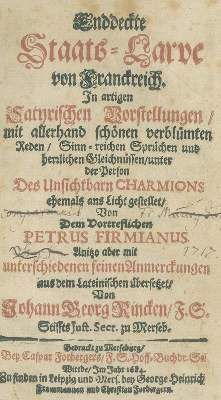 Enddeckte
Staats-Larve
von Franckreich.
In artigen
Satyrischen Vorstellungen/
mit allerhand schönen verblümten
Reden/ Sinn-reichen Sprüchen und
herrlichen Gleichnüssen/unter
der Person
Des Unsichtbarn CHARMIONS
ehemals ans Licht gestellet/
Von
Dem Vortreflichen
PETRUS FIRMIANUS.
Anitzo aber mit
unterschiedenen feinen Anmerckungen
aus dem Lateinischen übersetzet/
Von
Johann Georg Rincken/ F. S.
Stiffts Just. Secr. zu Merseb.
Gedruckt zu Merseburg/
Bey Caspar Forbergers/ F. S. Hoff-Buchdr. Sel.
Witbe/ Im Jahr 1684.
Zu finden in Leipzig und Mers. bey George Heinrich
Frommannen und Christian Forbergern.